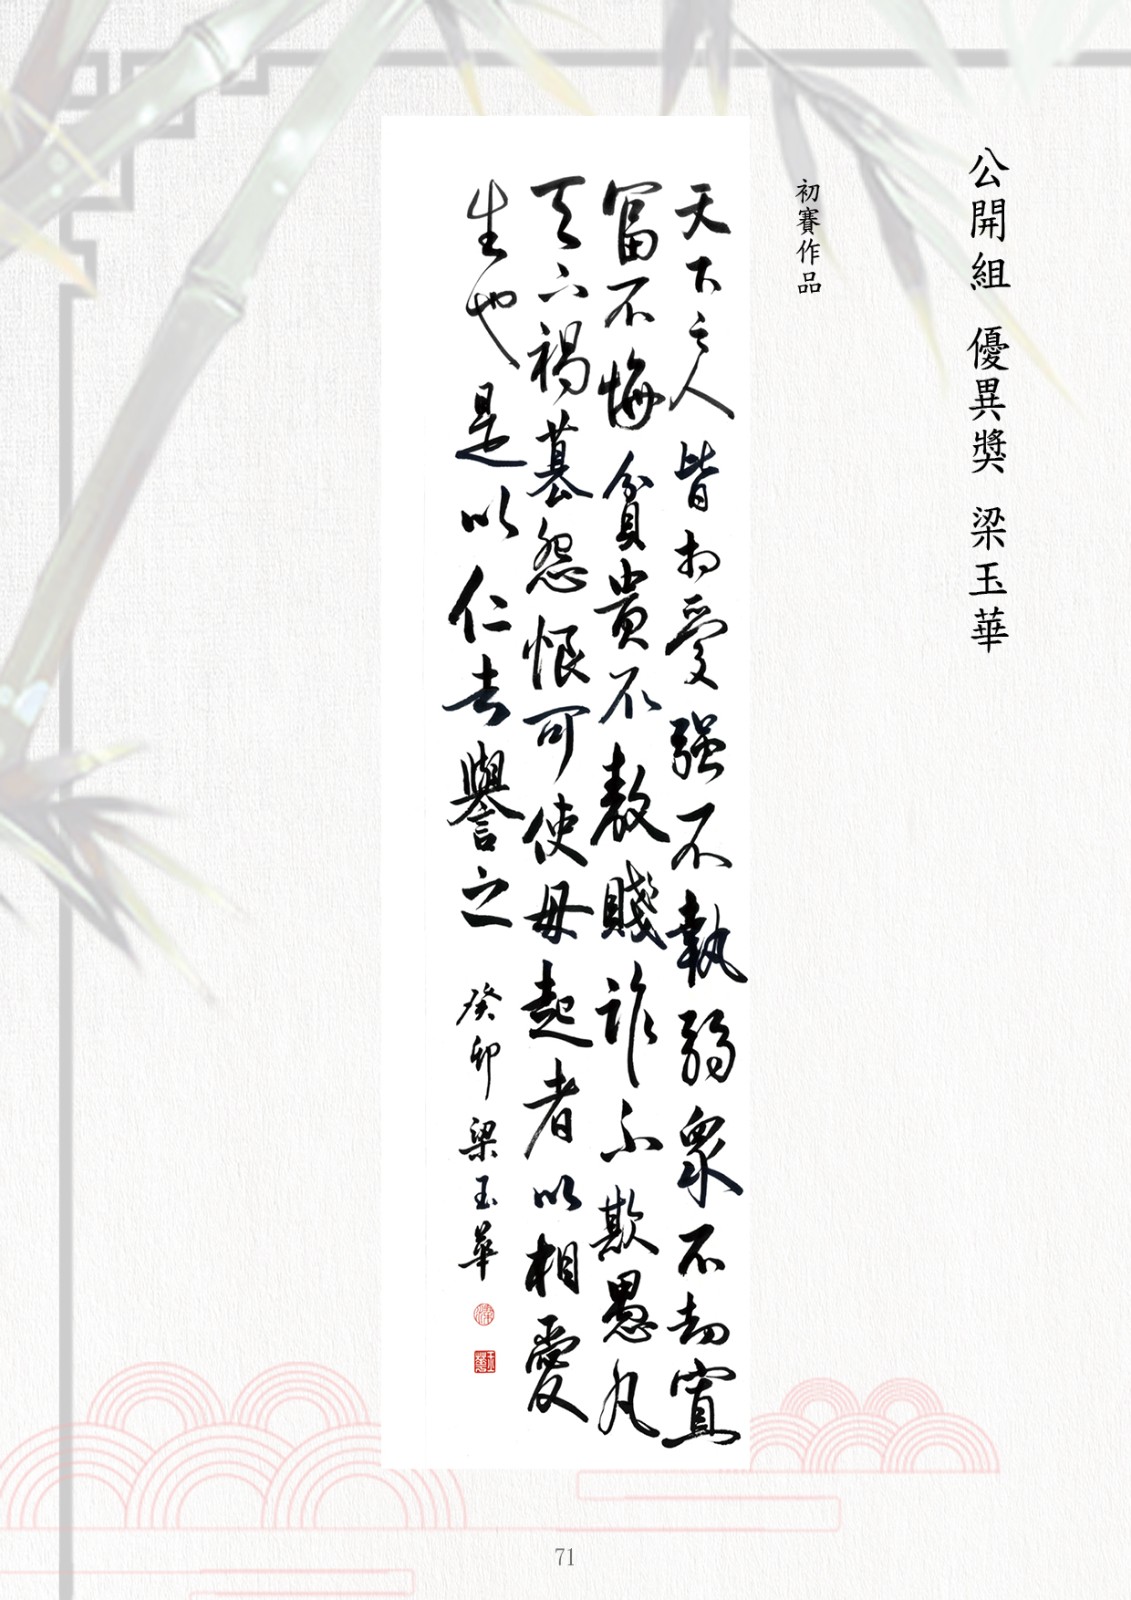 公開組 優異獎 梁玉華
初賽作品
天下之人皆相愛强不執弱衆不劫寡
富不悔貧貴不敖賤詐不欺愚凡
天下禍篡怨恨可使毋起者以相愛
生也是以仁者譽之 癸卯梁玉華
71